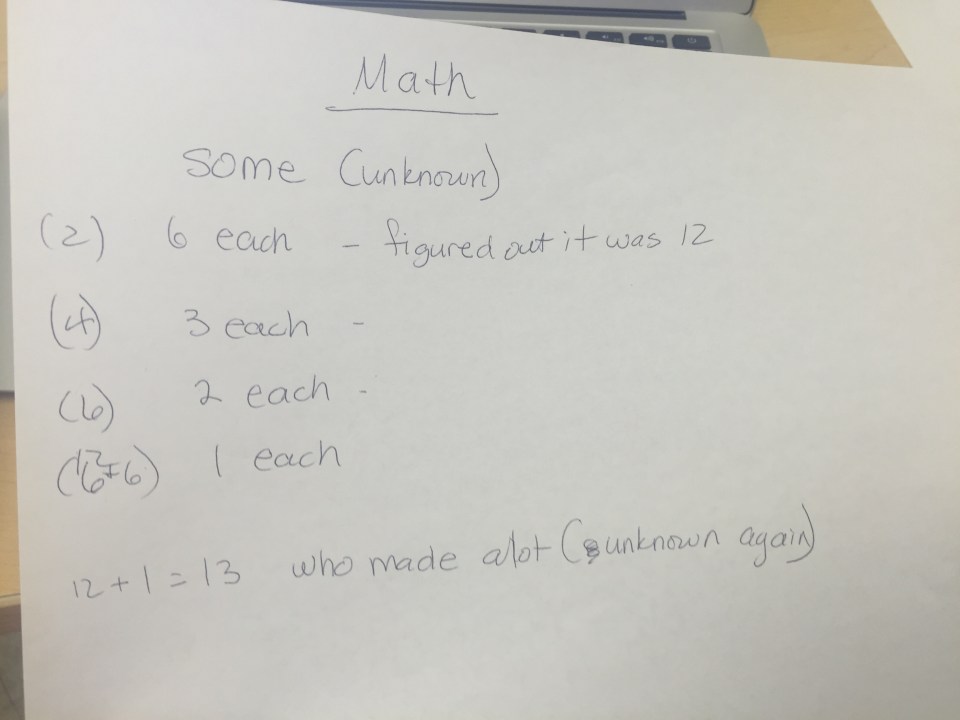 Math
some (unknown)
(2) 6 each - figured out it was 12
(4) 3 each -
(6) 2 each -
1 each
12 + 1 = 13 who made alot (unknown again)